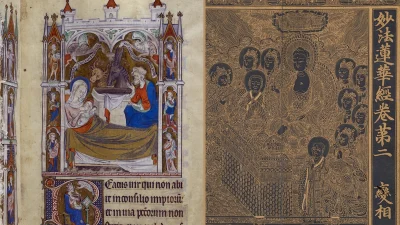 Beatus uir qui non abi
it in consilio impiorū
et in uia pccorum non
妙法蓮華經卷第二 變相